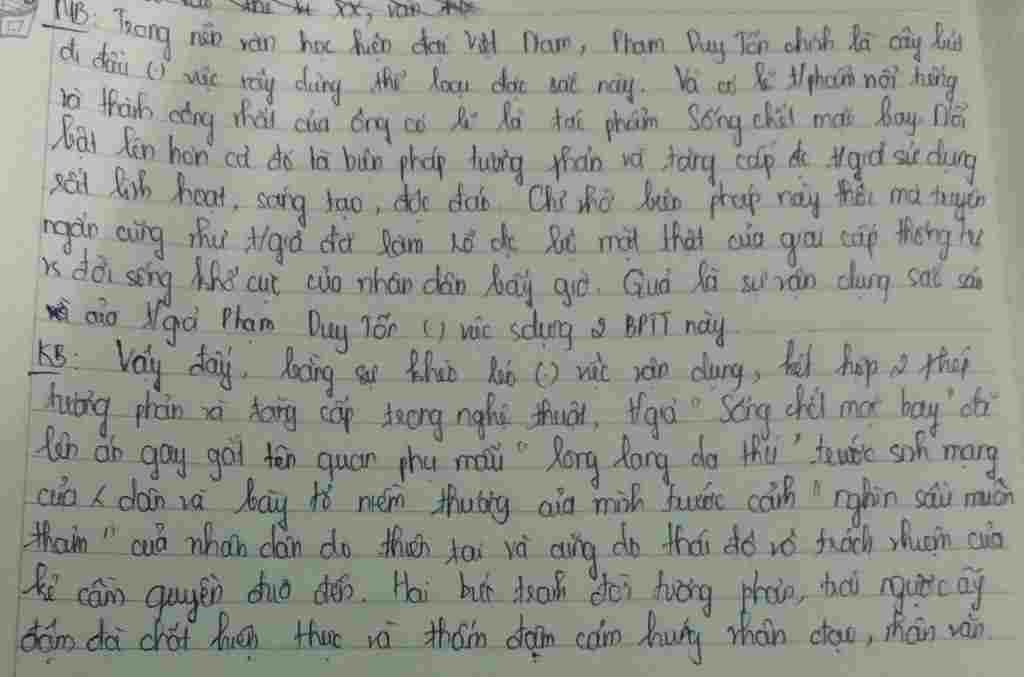 MB: Trong nền văn học hiện đại Việt Nam, Phạm Duy Tốn chính là cây bút
đi đầu (.) việc xây dựng thể loại đặc sắc này. Và có lẽ t/phẩm nổi tiếng
và thành công nhất của ông có lẽ là tác phẩm Sống chết mặc bay. Nổi
bật lên hơn cả đó là biện pháp tương phản và tăng cấp đc t/giả sử dụng
rất linh hoạt, sáng tạo, độc đáo. Chỉ nhờ biện pháp này thôi mà truyện
ngắn cũng như t/giả đã làm rõ đc bộ mặt thật của giai cấp thống trị
vs đời sống khổ cực của nhân dân bấy giờ. Quả là sự vận dụng sâu sắc
của t/giả Phạm Duy Tốn (.) việc sdụng 2 BPTT này
KB: Vậy đấy, bằng sự khéo léo (.) việc vận dụng, kết hợp 2 phép
tương phản và tăng cấp trong nghệ thuật, t/giả "Sống chết mặc bay" đã
lên án gay gắt tên quan phụ mẫu "lòng lang dạ thú" trước sinh mạng
của dân và bày tỏ niềm thương của mình trước cảnh "nghìn sầu muôn
thảm" của nhân dân do thiên tai và cũng do thái độ vô trách nhiệm của
kẻ cầm quyền đưa đến. Hai bức tranh đời tương phản, trái ngược ấy
đậm đà chất hiện thực và thấm đậm cảm hứng nhân đạo, nhân văn.